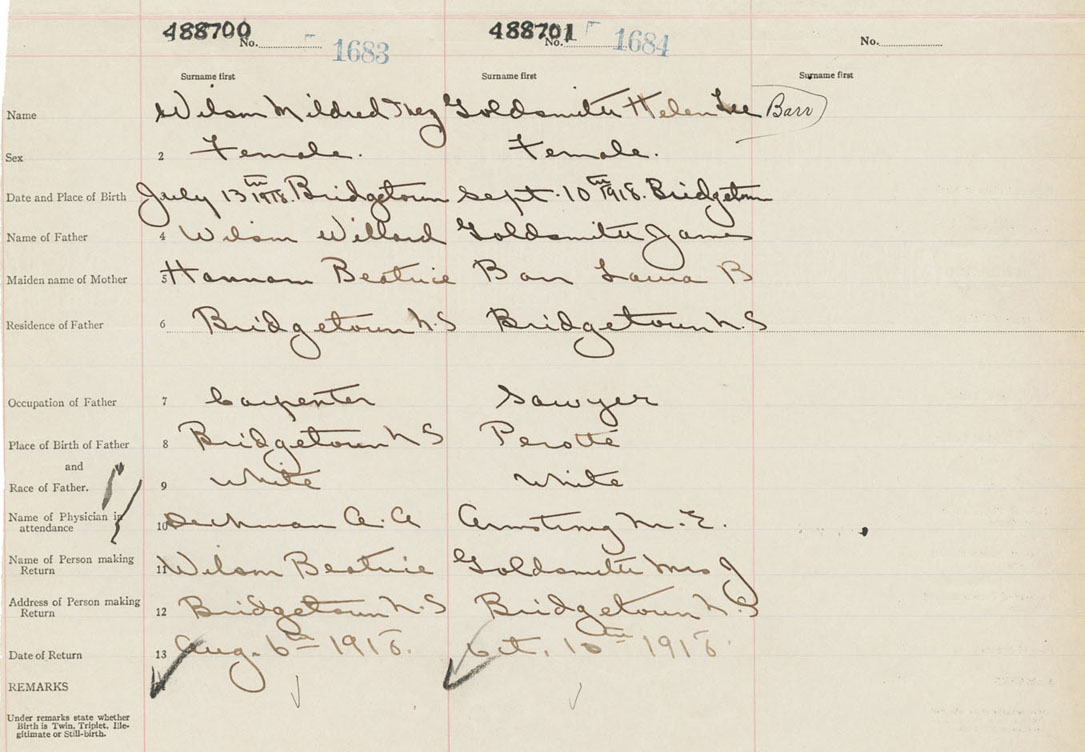 488700 488701
No. 1683 No. 1684 No.
Surname first Surname first Surname first
Name Wilson Mildred Inez Goldsmith Helen Lee Barr
Sex 2 Female. Female.
Date and Place of Birth July 13th 1918. Bridgetown Sept. 10th 1918. Bridgetown
Name of Father 4 Wilson Willard Goldsmith James
Maiden name of Mother 5 Hannam Beatrice Barr Laura B
Residence of Father 6 Bridgetown N.S Bridgetown N.S
Occupation of Father 7 Carpenter Sawyer
Place of Birth of Father 8 Bridgetown N S Perotte
and
Race of Father. 9 White White
Name of Physician in
attendance 10 Deckman A. A Armstrong M. E.
Name of Person making
Return 11 Wilson Beatrice Goldsmith Mrs J
Address of Person making
Return 12 Bridgetown N.S Bridgetown N.S
Date of Return 13 Aug. 6th 1918. Oct. 10th 1918.
REMARKS
Under remarks state whether
Birth is Twin, Triplet, Ille-
gitimate or Still-birth.